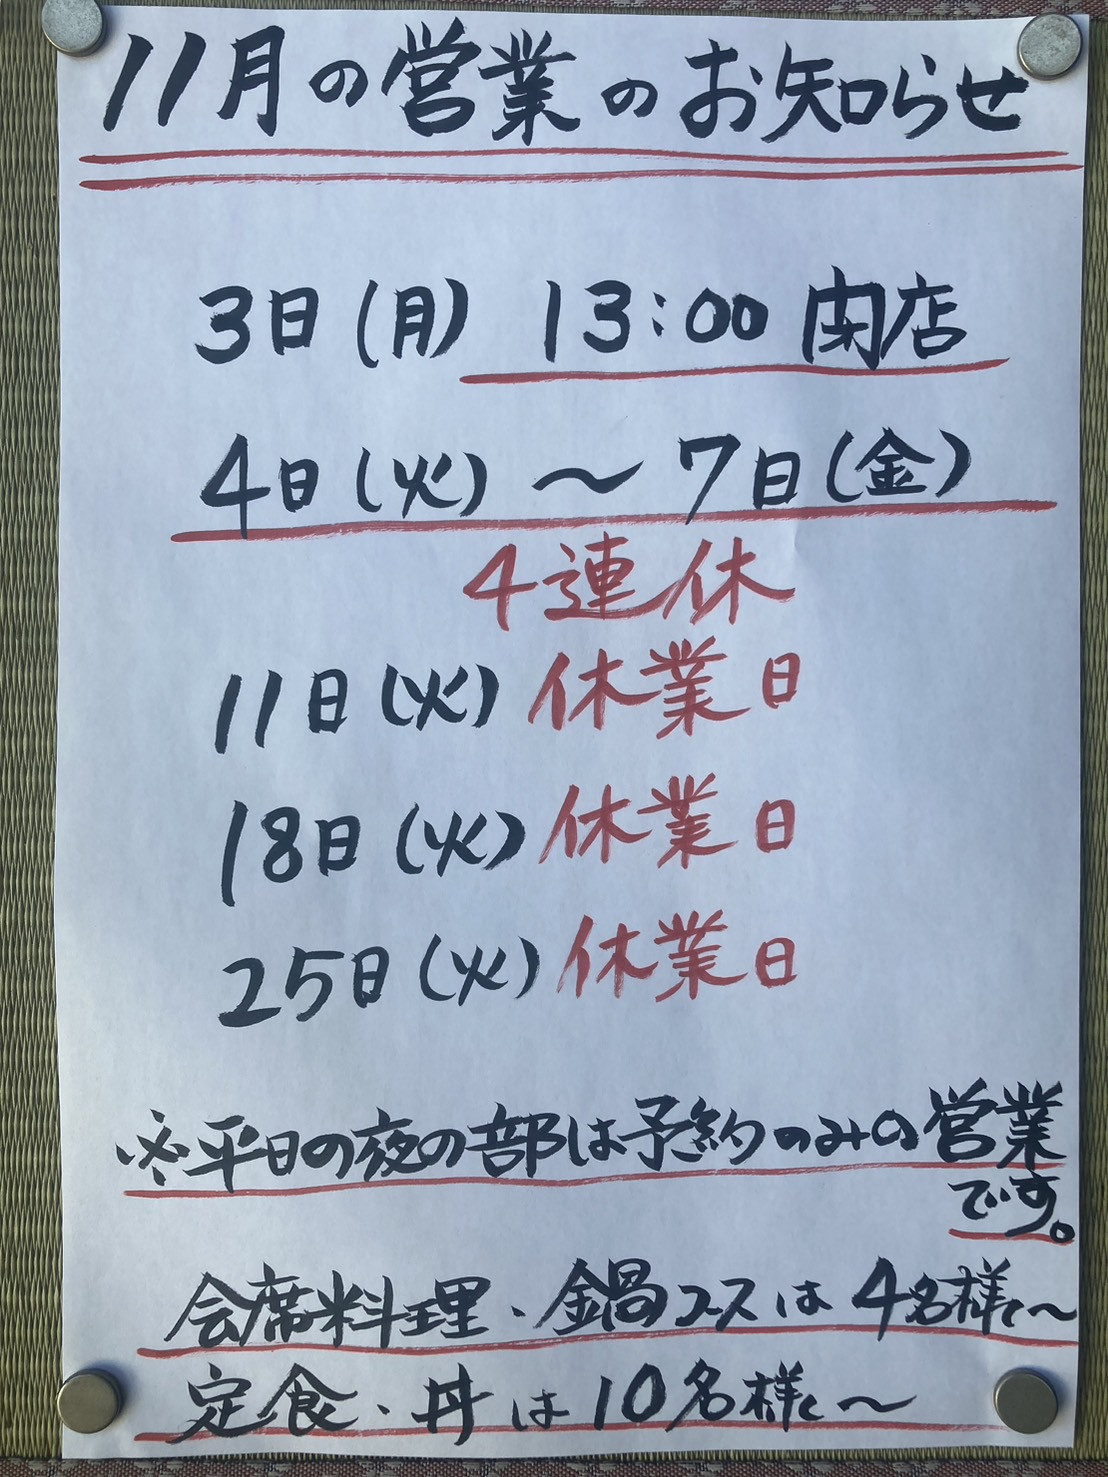 11月の営業のお知らせ
3日(月) 13:00 閉店
4日(火)～7日(金)
4連休
11日(火)休業日
18日(火)休業日
25日(火)休業日
※平日の夜の部は予約のみの営業
です。
会席料理・鍋コースは4名様〜
定食・丼は10名様〜